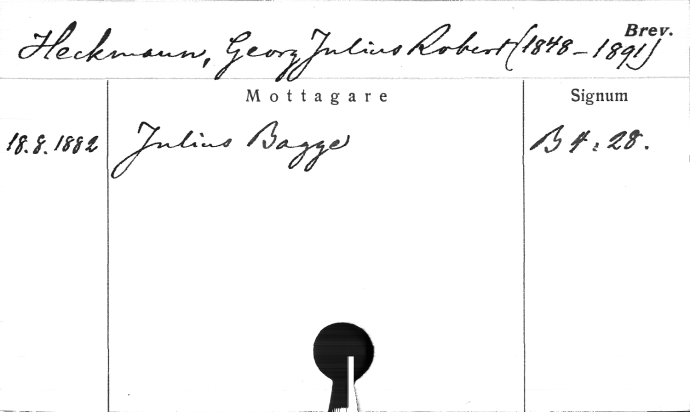 Brev.
Heckmann, Georg Julius Robert (1848-1891)
Mottagare Signum
18.8.1882 Julius Bagge B 4:28.